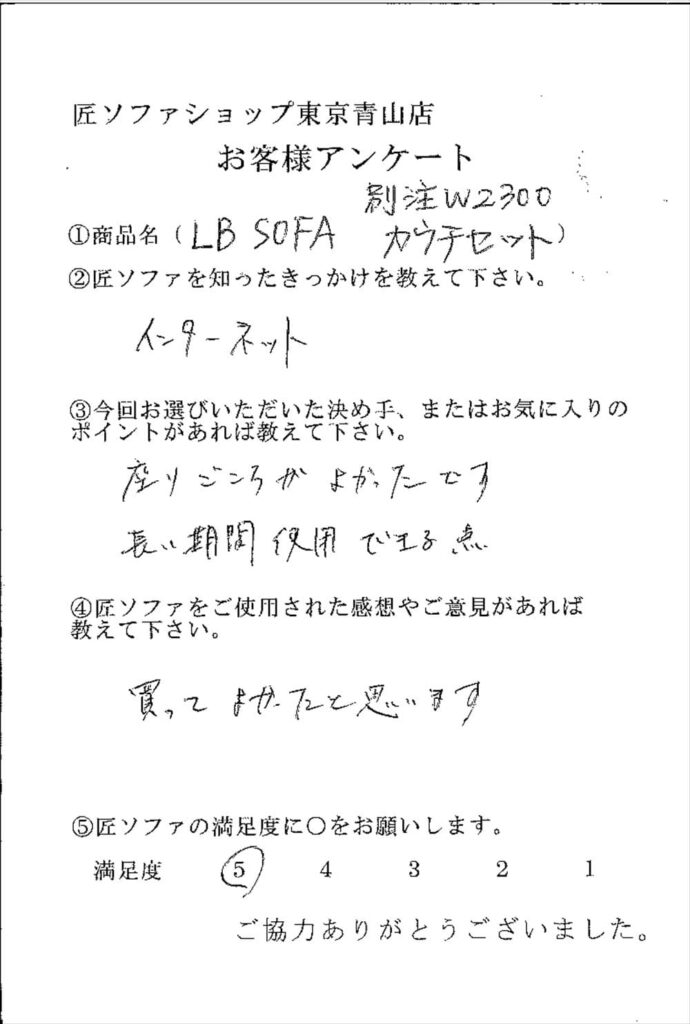 匠ソファショップ東京青山店
お客様アンケート
別注W2300
①商品名（LB SOFA カウチセット）
②匠ソファを知ったきっかけを教えて下さい。
インターネット
③今回お選びいただいた決め手、またはお気に入りの
ポイントがあれば教えて下さい。
座りごころがよかったです
長い期間使用できる点
④匠ソファをご使用された感想やご意見があれば
教えて下さい。
買ってよかったと思います
⑤匠ソファの満足度に〇をお願いします。
満足度 5 4 3 2 1
ご協力ありがとうございました。